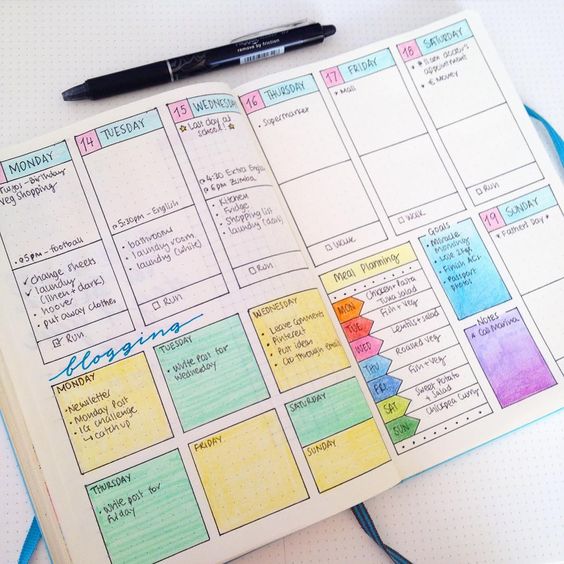 remove by friction
MONDAY
Birthday
veg shopping
05PM - football
change sheets
laundry
(linen + dark)
hoover
put away clothes
Run
14 TUESDAY
5:30pm - English
bathrooms
laundry room
laundry (white)
Run
15 WEDNESDAY
Last day at
school!
4:30 Extra English
6pm Zumba
Kitchen
Fridge
shopping list
laundry (dark)
Run
16 THURSDAY
Supermarket
Walk
17 FRIDAY
Mall
Walk
18 SATURDAY
11am doctor's
appointment
€ Money
Run
19 SUNDAY
Father's Day
blogging
MONDAY
Newsletter
Monday Post
IG challenge
catch up
TUESDAY
Write post for
Wednesday
WEDNESDAY
Leave comments
Pinterest
Post ideas
Go through email
THURSDAY
Write post for
Friday
FRIDAY
SATURDAY
SUNDAY
Meal Planning
MON
Chicken + Pasta
Tuna Salad
TUE
Fish + Veg
WED
Lentils + salad
THU
Roasted veg
FRI
Fish + Veg
SAT
Sweet Potato
+ Salad
SUN
Chickpea Curry
Goals
Miracle
Morning
Finish
Passport
photos
NOTES